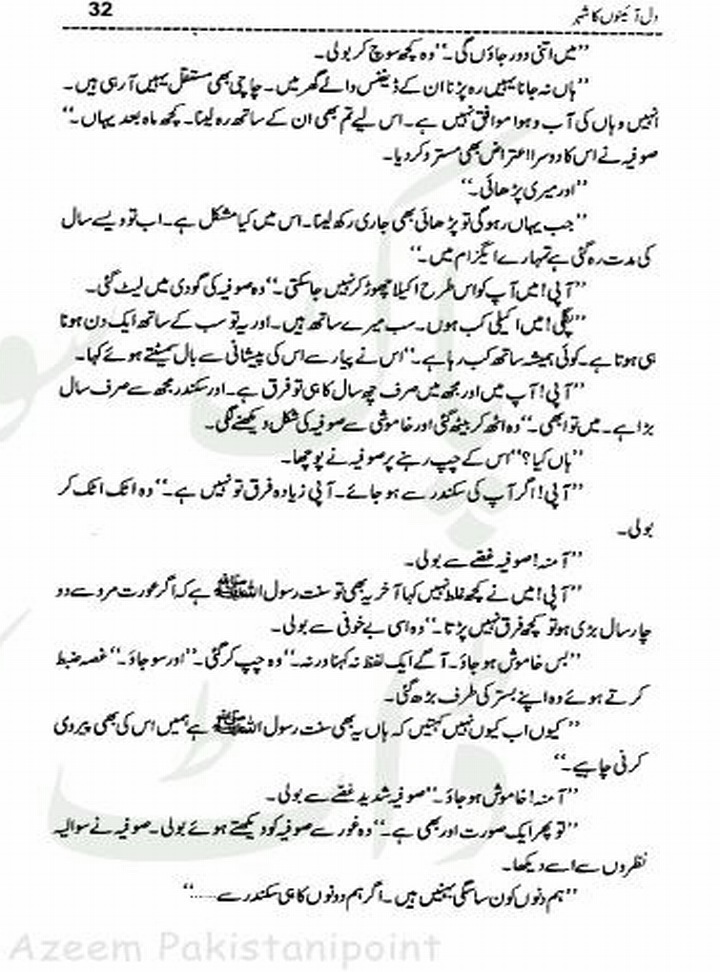 32
دل آئینوں کا شہر
’’میں اتنی دور جاؤں گی۔‘‘ وہ کچھ سوچ کر بولی۔
’’ہاں نہ جانا یہیں رہ پڑنا ان کے ڈیفنس والے گھر میں۔ چاچی بھی مستقل یہیں آ رہی ہیں۔
انہیں وہاں کی آب و ہوا موافق نہیں ہے۔ اس لیے تم بھی ان کے ساتھ رہ لینا۔ کچھ ماہ بعد یہاں۔‘‘
صوفیہ نے اس کا دوسرا اعتراض بھی مسترد کر دیا۔
’’اور میری پڑھائی۔‘‘
’’جب یہاں رہو گی تو پڑھائی بھی جاری رکھ لینا۔ اس میں کیا مشکل ہے۔ اب تو ویسے سال
کی مدت رہ گئی ہے تمہارے ایگزام میں۔‘‘
’’آپی! میں آپ کو اس طرح اکیلا چھوڑ کر نہیں جا سکتی۔‘‘ وہ صوفیہ کی گودی میں لیٹ گئی۔
’’پگلی! میں اکیلی کب ہوں۔ سب میرے ساتھ ہیں۔ اور یہ تو سب کے ساتھ ایک دن ہونا
ہی ہوتا ہے۔ کوئی ہمیشہ ساتھ کب رہا ہے۔‘‘ اس نے پیار سے اس کی پیشانی سے بال سمیٹتے ہوئے کہا۔
’’آپی! آپ میں اور مجھ میں صرف چھ سال کا ہی تو فرق ہے۔ اور سکندر مجھ سے صرف سال
بڑا ہے۔ میں تو ابھی۔‘‘ وہ اٹھ کر بیٹھ گئی اور خاموشی سے صوفیہ کی شکل دیکھنے لگی۔
’’ہاں کیا؟‘‘ اس کے چپ رہنے پر صوفیہ نے پوچھا۔
’’آپی! اگر آپ کی سکندر سے ہو جائے۔ آپی زیادہ فرق تو نہیں ہے۔‘‘ وہ اٹک اٹک کر
بولی۔
’’آمنہ! صوفیہ غصے سے بولی۔
’’آپی! میں نے کچھ غلط نہیں کہا آخر یہ بھی تو سنت رسول اللہ ﷺ ہے کہ اگر عورت مرد سے دو
چار سال بڑی ہو تو کچھ فرق نہیں پڑتا۔‘‘ وہ اسی بے خوفی سے بولی۔
’’بس خاموش ہو جاؤ۔ آگے ایک لفظ نہ کہنا ورنہ۔‘‘ وہ چپ کر گئی۔ ’’اور سو جاؤ۔‘‘ غصہ ضبط
کرتے ہوئے وہ اپنے بستر کی طرف بڑھ گئی۔
’’کیوں اب کیوں نہیں کہتیں کہ ہاں یہ بھی سنت رسول اللہ ﷺ ہے ہمیں اس کی بھی پیروی
کرنی چاہیے۔‘‘
’’آمنہ! خاموش ہو جاؤ۔‘‘ صوفیہ شدید غصے سے بولی۔
’’تو پھر ایک صورت اور بھی ہے۔‘‘ وہ غور سے صوفیہ کو دیکھتے ہوئے بولی۔ صوفیہ نے سوالیہ
نظروں سے اسے دیکھا۔
’’ہم دنوں کون سا سگی بہنیں ہیں۔ اگر ہم دونوں کا ہی سکندر سے......‘‘
Azeem Pakistanipoint